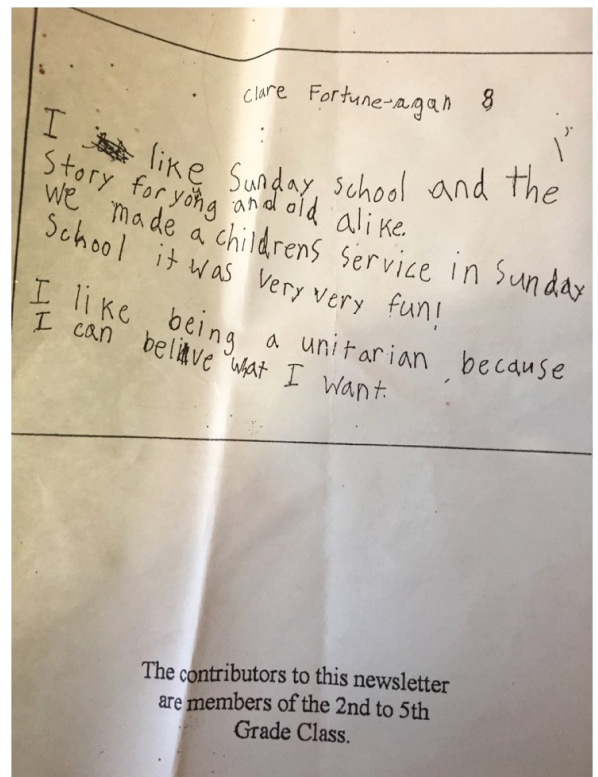 Clare Fortune-agan 8
I like Sunday school and the
Story for yong and old alike.
we made a childrens service in Sunday
School it was very very fun!
I like being a unitarian, because
I can belive what I want.
The contributors to this newsletter
are members of the 2nd to 5th
Grade Class.